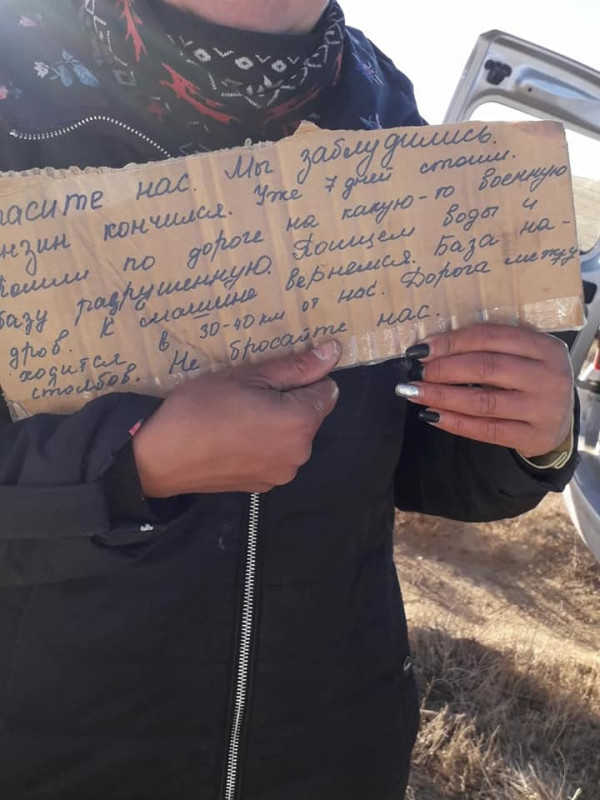 пасите нас. Мы заблудились.
нзин кончился. Уже 7 дней стоим.
ошли по дороге на какую-то военную
базу разрушенную. Поищем воды и
дров. К машине вернемся. База на-
ходится в 30-40 км от нас. Дорога между
столбов. Не бросайте нас.